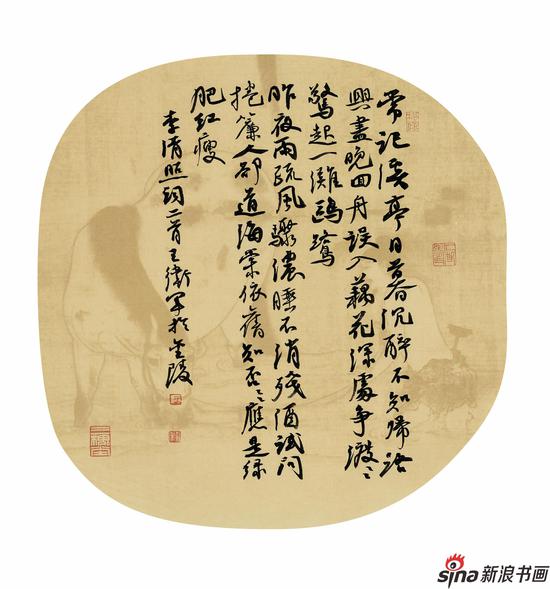 常记溪亭日暮沉醉不知歸路
興盡晚回舟误入藕花深處争渡〻
驚起一灘鷗鷺
昨夜雨疏风驟濃睡不消殘酒試问
捲簾人却道海棠依舊知否〻應是绿
肥红瘦
李清照词二首王衛军於金陵
sina新浪书画